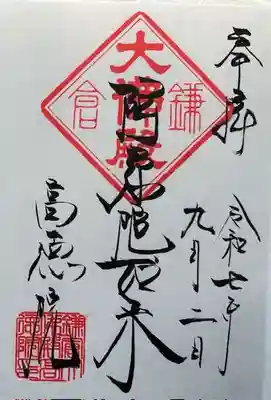 奉拝
令和七年
九月二日
大佛殿
鎌
倉
阿弥陀如来
高徳院